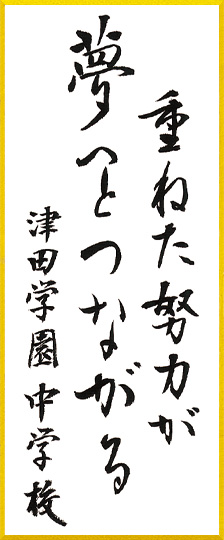 重ねた努力が
夢へとつながる
津田学園中学校